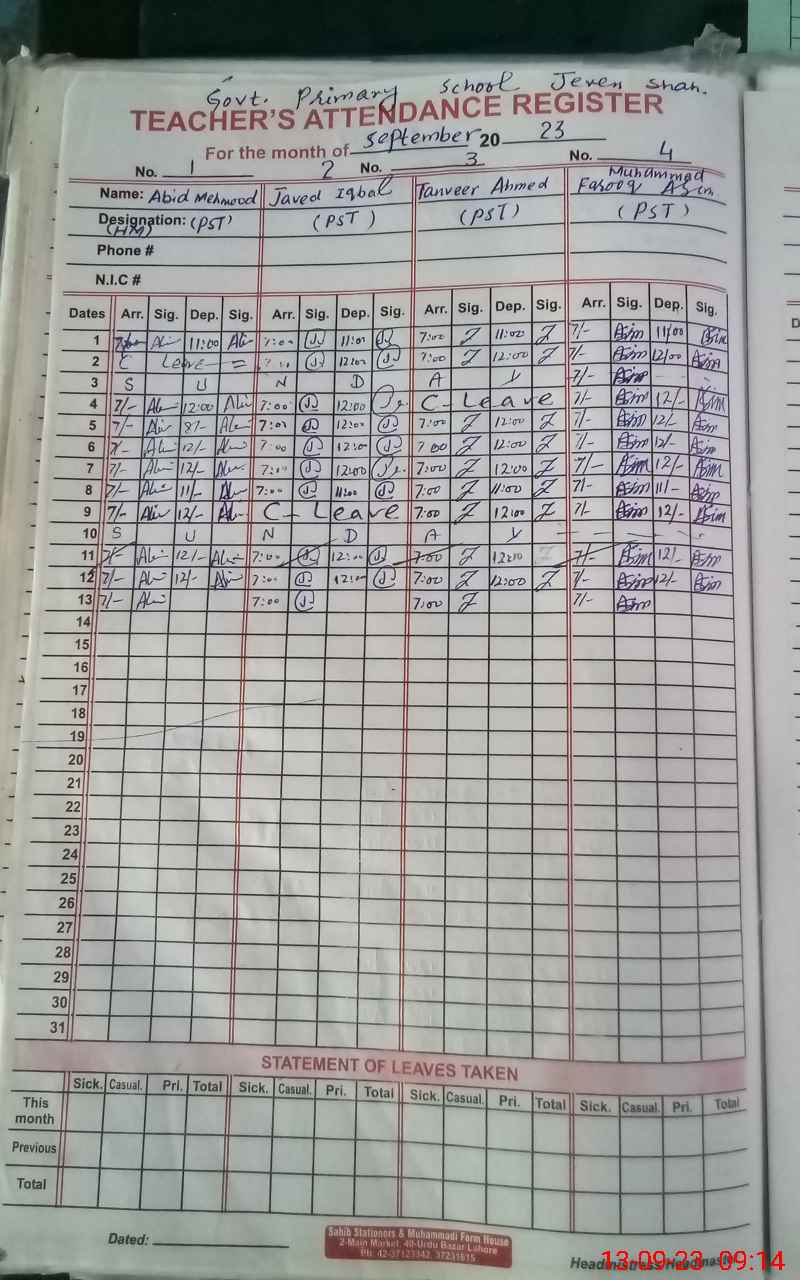 Govt. Primary School Jeven Shah.
TEACHER'S ATTENDANCE REGISTER
For the month of September 20 23
No. 1 2 No. 3 No. 4
Name: Abid Mehmood Javed Iqbal Tanveer Ahmed Muhammad Farooq Asim
Designation: (PST) (PST) (PST) (PST)
(HM)
Phone #
N.I.C #
Dates Arr. Sig. Dep. Sig. Arr. Sig. Dep. Sig. Arr. Sig. Dep. Sig. Arr. Sig. Dep. Sig.
1 11:00 7:00 11:00 7:00 11:00 7/- Asim 11/00 Asim
2 C Leave = 12:00 7:00 12:00 7/- Asim 12/00 Asim
3 S U N D A Y 7/- Asim
4 7/- 12:00 7:00 12:00 C- Leave 7/- Asim 12/- Asim
5 7/- 8/- 7:00 12:00 7:00 12:00 7/- Asim 12/- Asim
6 7/- 12/- 7:00 12:00 7:00 12:00 7/- Asim 12/- Asim
7 7/- 12/- 7:00 12:00 7:00 12:00 7/- Asim 12/- Asim
8 7/- 11/- 7:00 11:00 7:00 11:00 7/- Asim 11/- Asim
9 7/- 12/- C- Leave 7:00 12:00 7/- Asim 12/- Asim
10 S U N D A Y
11 7/- 12/- 7:00 12:00 7:00 12:00 7/- Asim 12/- Asim
12 7/- 12/- 7:00 12:00 7:00 12:00 7/- Asim 12/- Asim
13 7/- 7:00 7:00 7/- Asim
14
15
16
17
18
19
20
21
22
23
24
25
26
27
28
29
30
31
STATEMENT OF LEAVES TAKEN
Sick. Casual. Pri. Total Sick. Casual. Pri. Total Sick. Casual. Pri. Total Sick. Casual. Pri. Total
This month
Previous
Total
Dated:
Sahib Stationors & Muhammadi Form House
2-Main Market, 40-Urdu Bazar Lahore
Ph: 42-37123342, 37231815
Headmistress/Headmaster
13-09-23 09:14